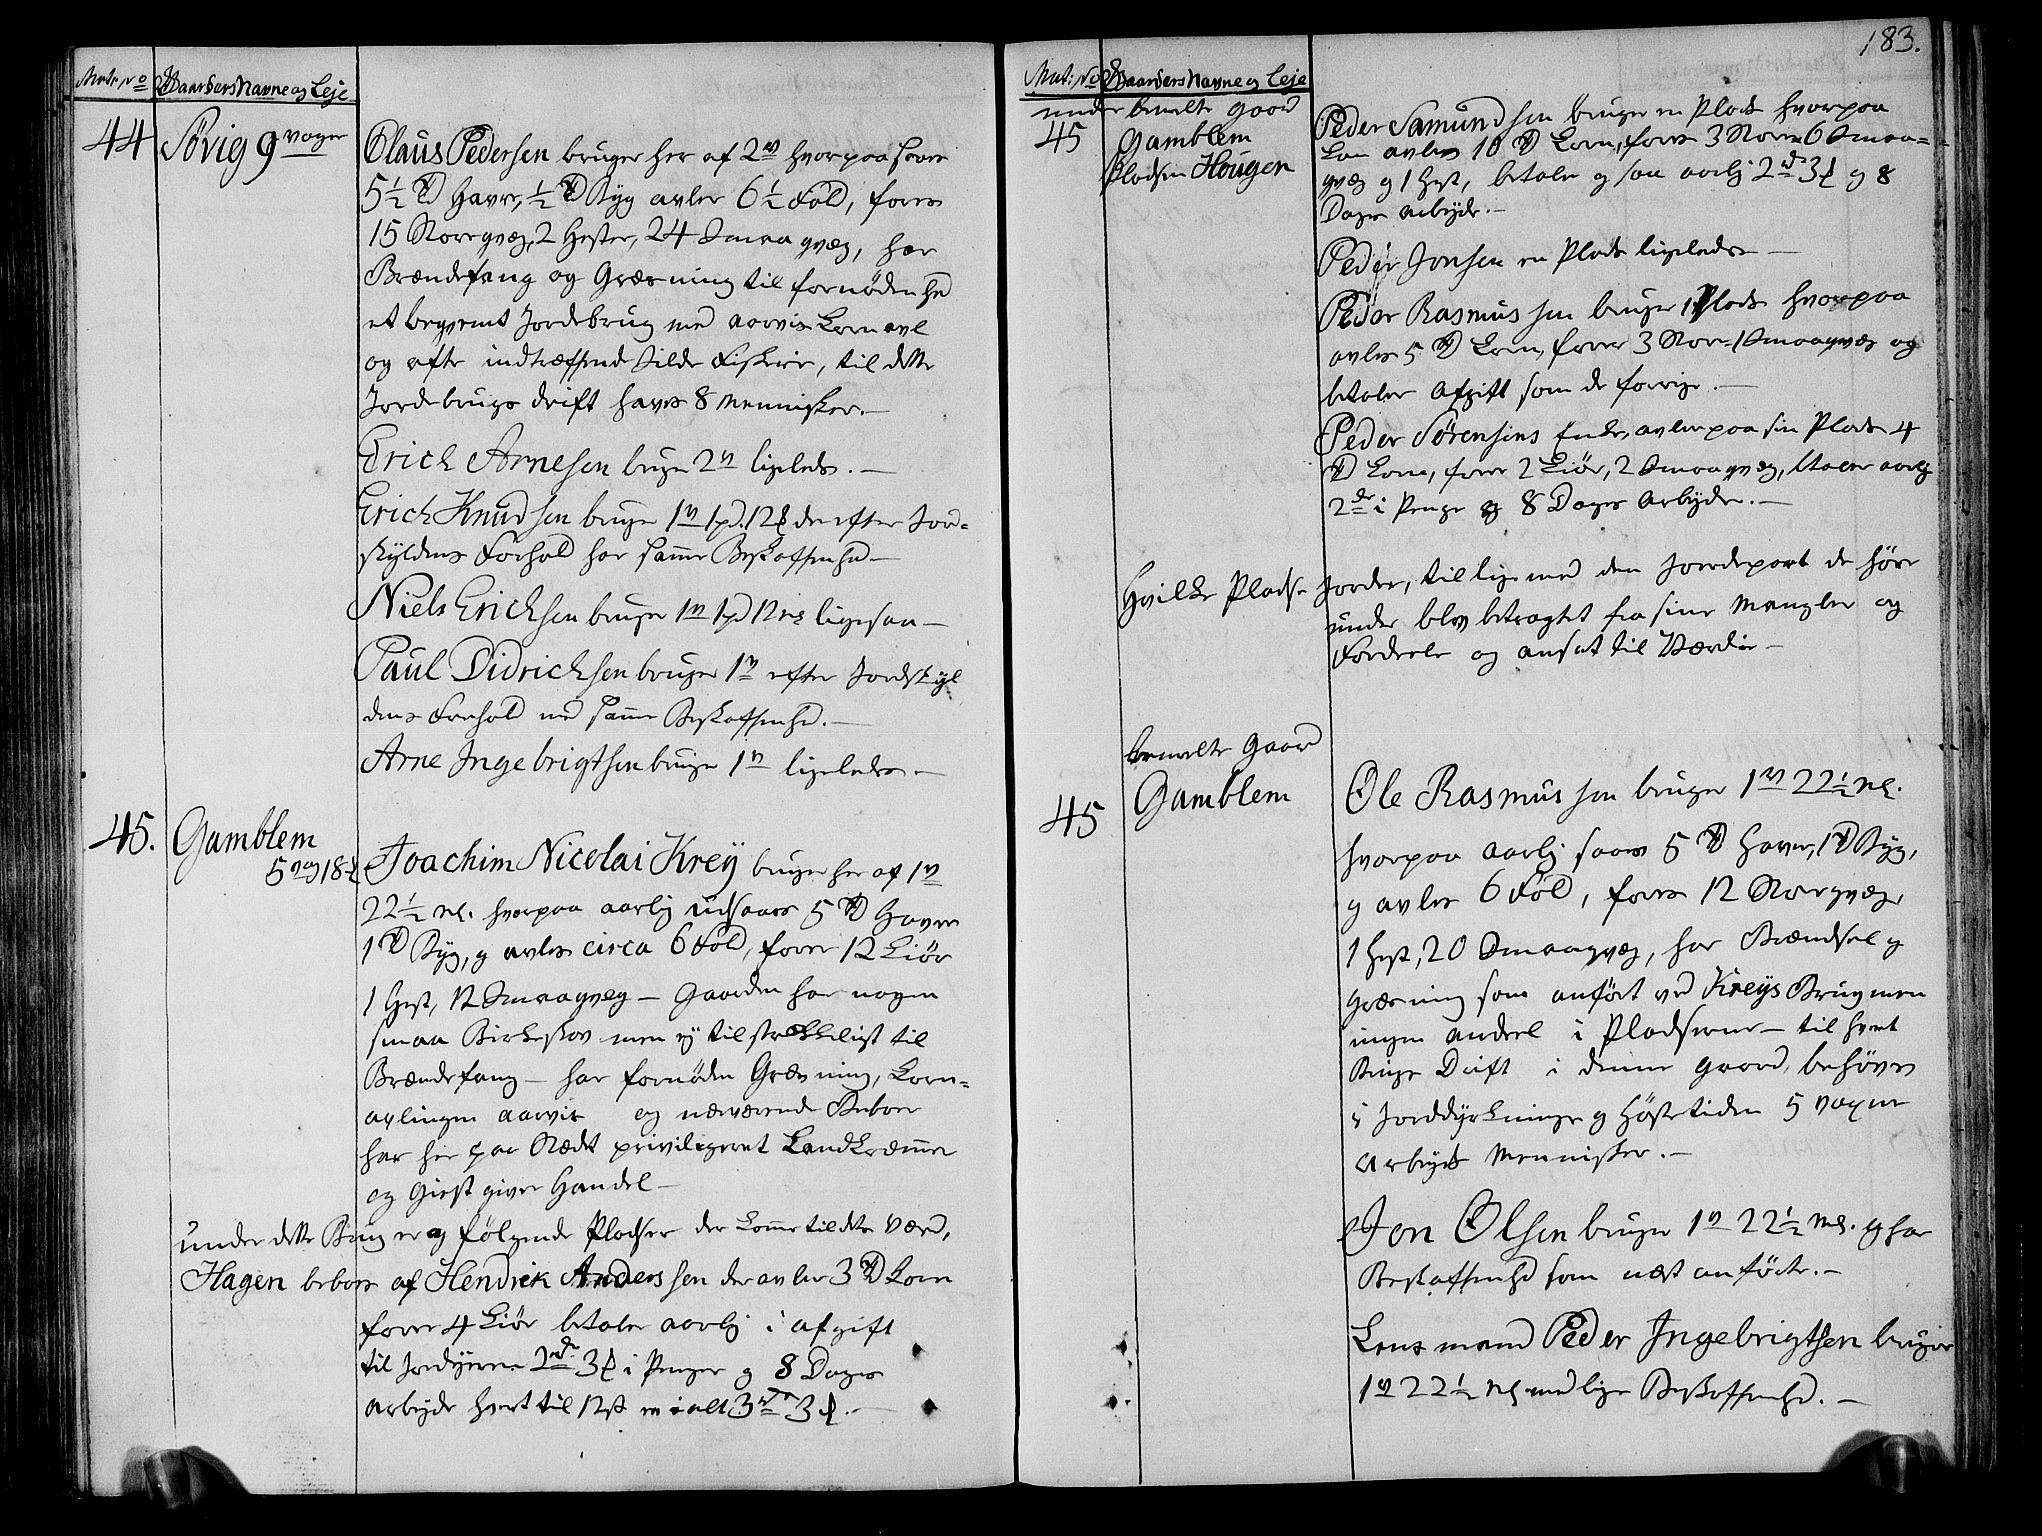 Matr: No Gaarders Navne og Leje
44 Sørig 9 voger
Olaus Pedersen bruger her af 2 v hvorpaa saaes
5½ Td Havre, ½ Td Byg avler 6½ Fold, fores
15 Storeqvæg, 2 Hester, 24 Smaaqvæg, har
Brændefang og Græsning til fornødenhed
et beqvemt Jordebrug med aarvis Korn avl
og ofte indtræffende Silde Fiskerie, til dette
Jordebrugs drift haves 8 Mennisker.—
Erich Arnesen bruger 2 v ligeledes.—
Erich Knudsen bruger 1 v 1 pd. 12 der efter Jord-
skyldens Forhold har samme Beskaffenhed—
Niels Erichsen bruger 1 v 1 pd 12 ligesaa—
Paul Didrichsen bruger 1 v efter Jordskyl
dens Forhold med samme Beskaffenhed.—
Arne Ingebrigtsen bruger 1 v ligeledes.—
45. Gamblem
5 vog 18
Joachim Nicolai Krey bruger her af 1 v
22½ mk. hvorpaa aarlig udsaaes 5 Td Havre
1 Td Byg, og avles circa 6 Fold, fores 12 Kiør
1 Hest, 12 Smaaqvæg — Gaarden har nogen
smaa Birkeskov men ej tilstrækkeligt til
Brændefang — har fornøden Græsning, Korn-
avlingen aarvis og nærværende Beboer
har her paa Stædet privilegeret Landkræmmer
og Giestgiver Handel—
under dette Brug er og følgende Pladser der komme til dets Værd,
Hagen beboes af Hendrik Anderssen der avler 3 Td Korn
foeer 4 Kiør betaler aarlig i afgift
til Jordejeren 2 rdr 3 i Penger og 8 Dages
arbeyde hvert til 12 s er i alt 3 rdr 3.—
183.
Mat: No Gaarders Navne og Leje
under bemelte Gaard
45 Gamblem
Pladsen Hougen
Peder Samundsen bruger en Plads hvorpaa
kan avles 10 Td Korn, fores 3 Store 6 Smaa-
qvæg og 1 Hest, betaler og saa aarlig 2 rdr 3 og 8
Dages arbeyde.—
Peder Jonsen en Plads ligeledes—
Peder Rasmussen bruger 1 Plads hvorpaa
avles 5 Td Korn, foeer 3 Stor- Smaaqvæg og
betaler Afgift som de forrige.—
Peder Sørensens Enke, avler paa sin Plads 4
Td Korn, foeer 2 Kiør, 2 Smaaqvæg, betaler aarlig
2 dr i Penge og 8 Dages Arbeyde.—
Hvilke Pladse Jorder, tillige med den Jordepart de høre
under blev betragtet fra sine Mangler og
Fordeele og ansat til Værdie—
bemelte Gaard
45 Gamblem
Ole Rasmussen bruger 1 v 22½ mk.
hvorpaa aarlig saaes 5 Td Havre, 1 Td Byg,
og avles 6 Fold, fores 12 Storqvæg,
1 Hest, 20 Smaaqvæg, har Brændsel og
Græsning som anført ved Kreys Brug men
ingen andeel i Pladserne — til hvert
Brugs Drift i denne Gaard, behøves
i Jorddyrkninge og Høstetiden 5 voxne
Arbeyds Mennisker.—
Jon Olsen bruger 1 v 22½ mk. og har
Beskaffenhed som næst anførte.—
Lensmand Peder Ingebrigtsen bruger
1 v 22½ mk med lige Beskaffenhed.—